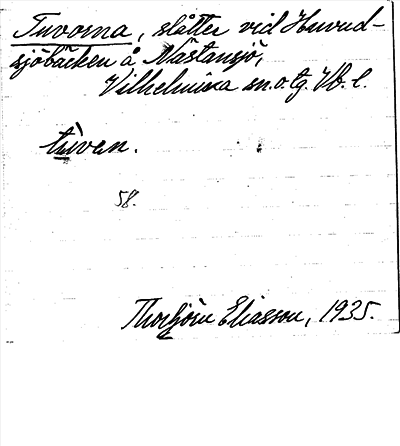 Tuvorna, slåtter vid Huvud-
sjöbäcken å Nästansjö,
Vilhelmina sn. o. tg. Vb. l.
tùven.
58.
Thorbjörn Eliasson, 1935.